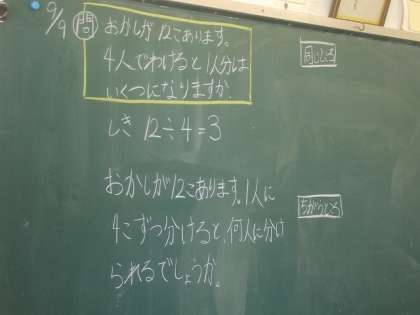 9/9 問 おかしが12こあります。
4人でわけると1人分は
いくつになりますか。
しき 12÷4=3
おかしが12こあります。1人に
4こずつ分けると、何人に分け
られるでしょうか。
同じところ
ちがうところ